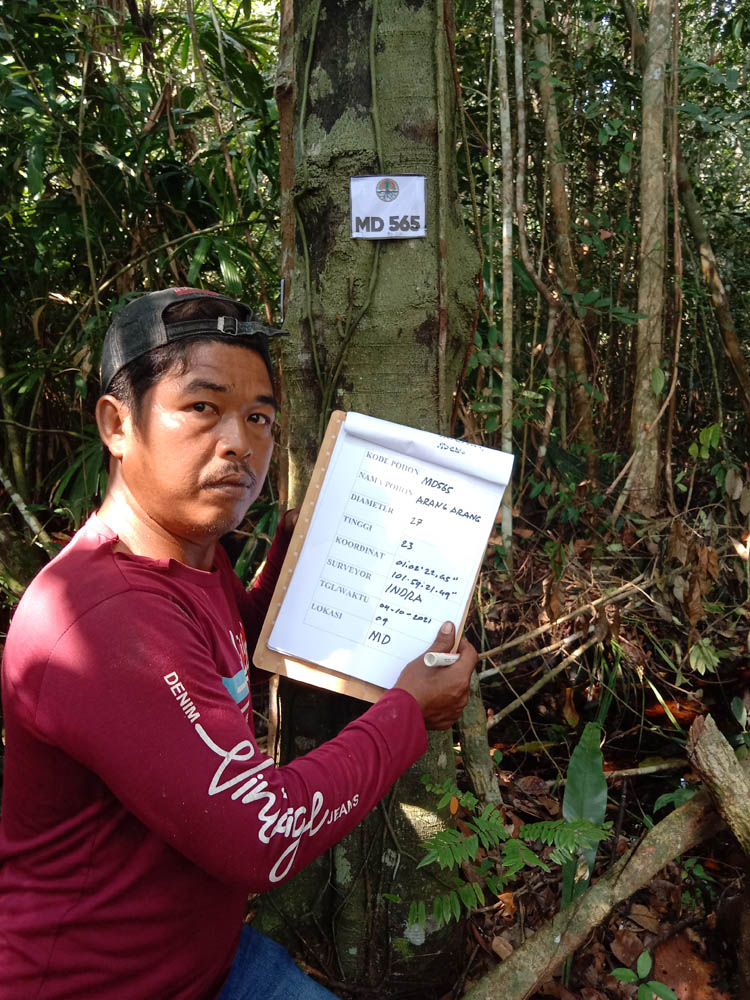 MD 565
KODE POHON MD565
NAMA POHON ARANG ARANG
DIAMETER 27
TINGGI 23
KOORDINAT 01:02'22.65"
101-59:21.49"
SURVEYOR INDRA
TGL/WAKTU 04-10-2021
09
LOKASI MD
DENIM
Vintage
JEANS